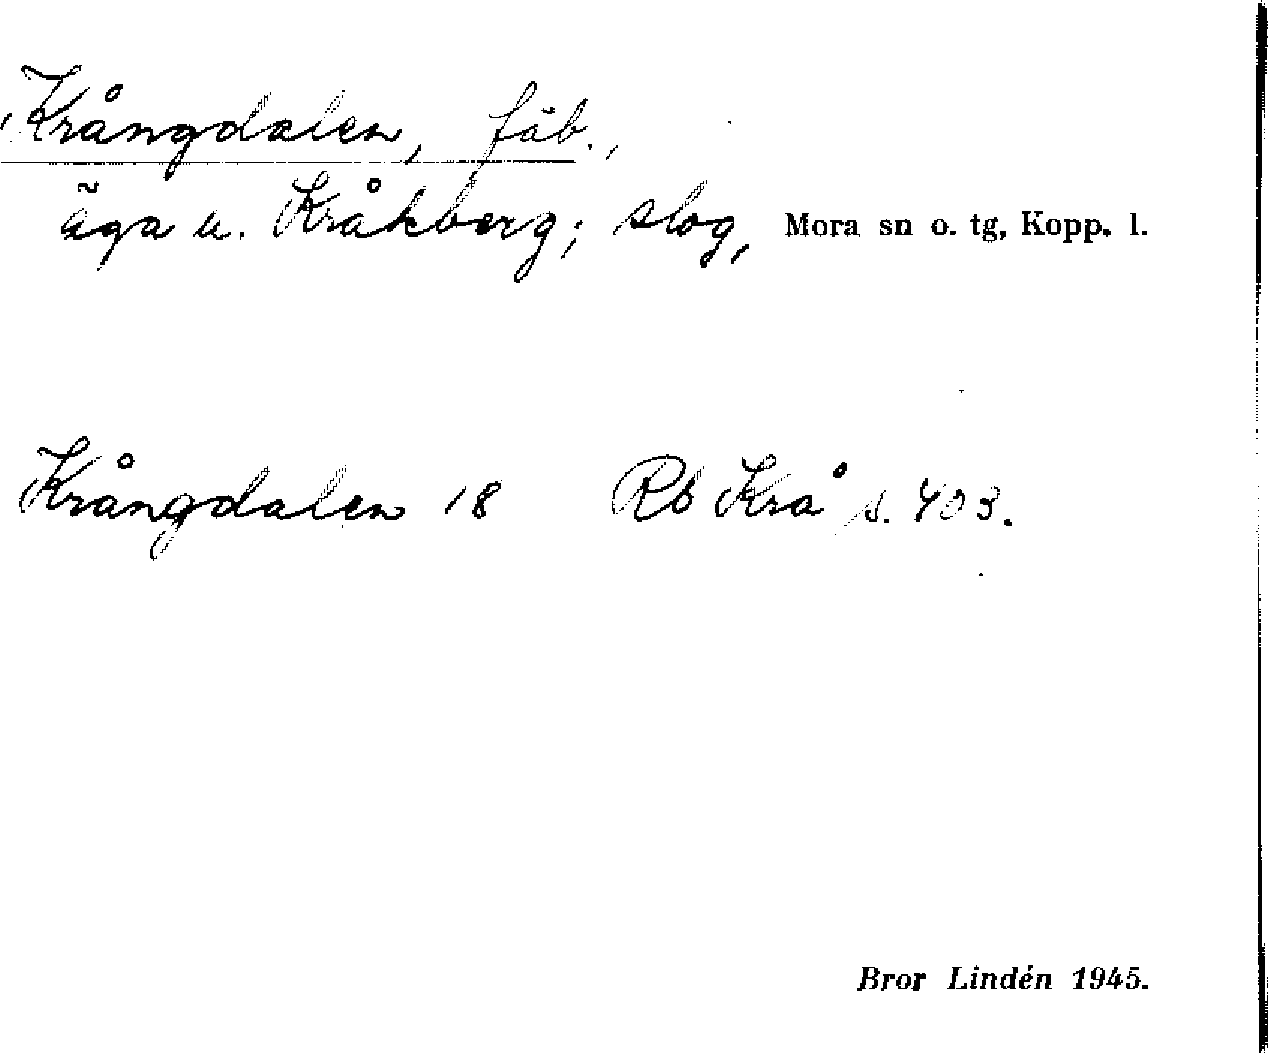 Krångdalen, fäb.,
äga u. Kråkberg; slog, Mora sn o. tg, Kopp. l.
Krångdalen 18 Rb Krå s. 403.
Bror Lindén 1945.